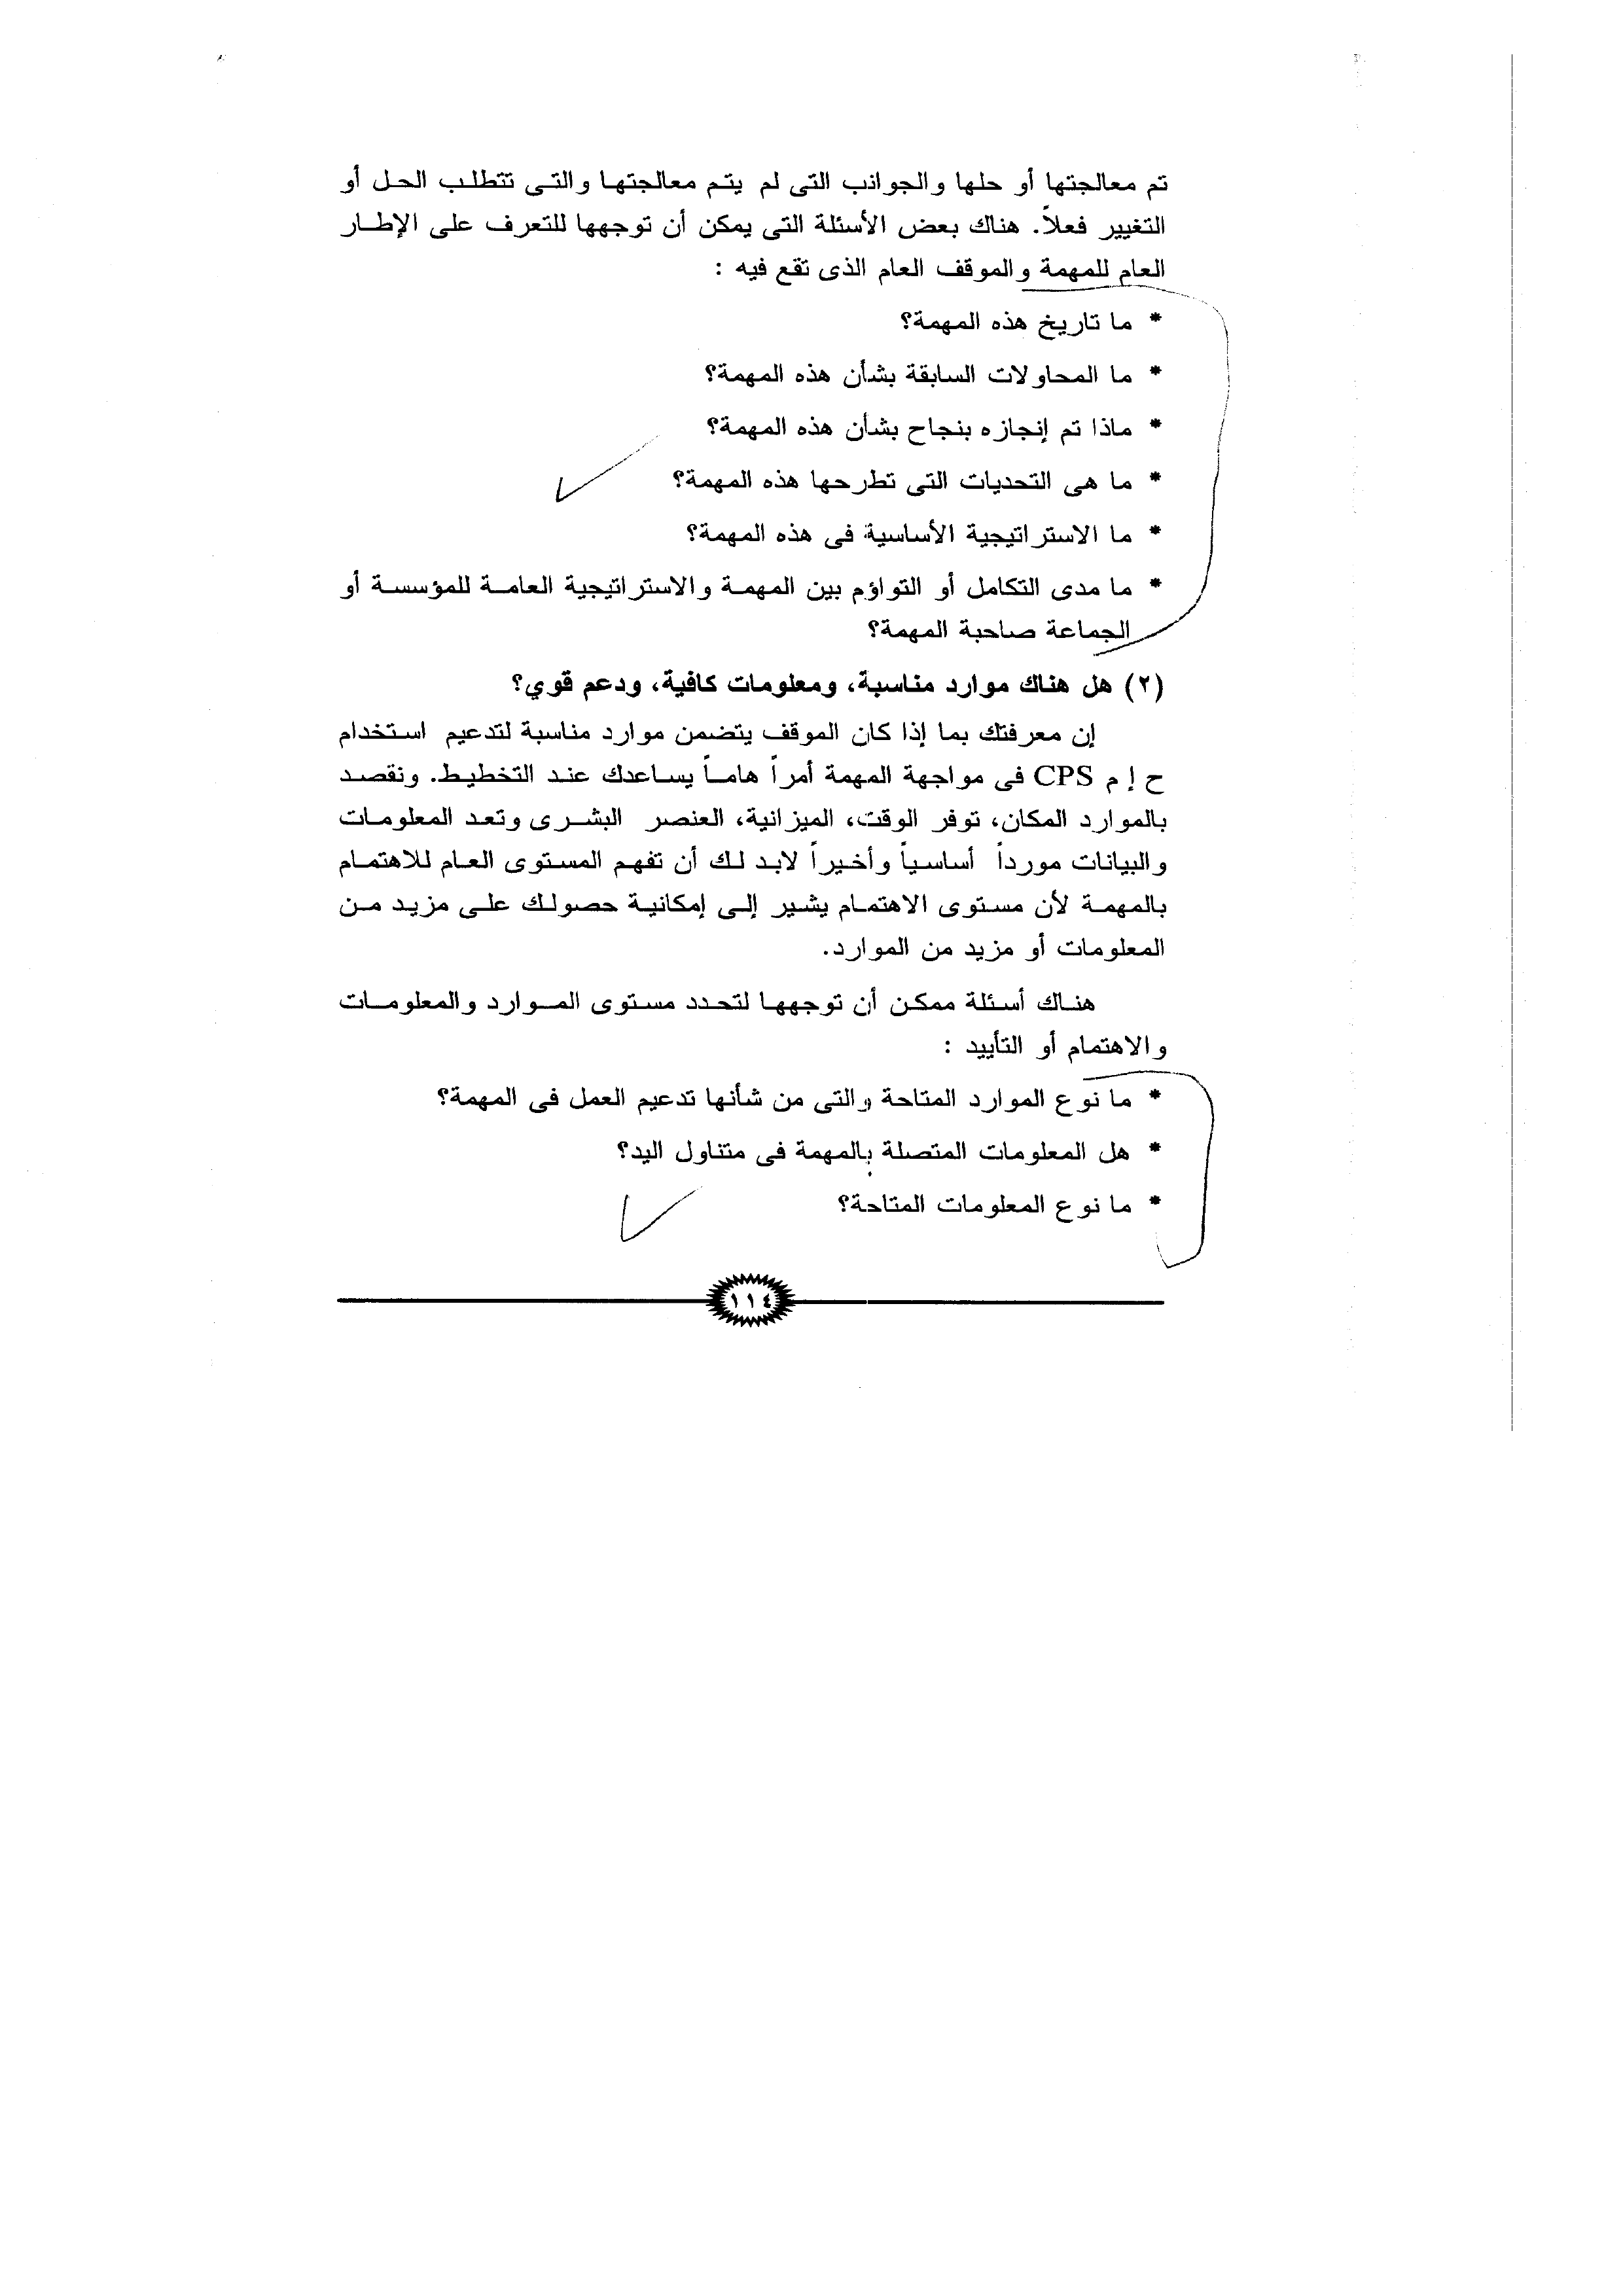 تم معالجتها أو حلها والجوانب التى لم يتم معالجتها والتى تتطلب الحل أو
التغيير فعلاً. هناك بعض الأسئلة التى يمكن أن توجهها للتعرف على الإطار
العام للمهمة والموقف العام الذى تقع فيه :
* ما تاريخ هذه المهمة؟
* ما المحاولات السابقة بشأن هذه المهمة؟
* ماذا تم إنجازه بنجاح بشأن هذه المهمة؟
* ما هى التحديات التى تطرحها هذه المهمة؟
* ما الاستراتيجية الأساسية فى هذه المهمة؟
* ما مدى التكامل أو التواؤم بين المهمة والاستراتيجية العامة للمؤسسة أو
الجماعة صاحبة المهمة؟
(٢) هل هناك موارد مناسبة، ومعلومات كافية، ودعم قوي؟
إن معرفتك بما إذا كان الموقف يتضمن موارد مناسبة لتدعيم استخدام
ح إ م CPS فى مواجهة المهمة أمراً هاماً يساعدك عند التخطيط. ونقصد
بالموارد المكان، توفر الوقت، الميزانية، العنصر البشرى وتعد المعلومات
والبيانات مورداً أساسياً وأخيراً لابد لك أن تفهم المستوى العام للاهتمام
بالمهمة لأن مستوى الاهتمام يشير إلى إمكانية حصولك على مزيد من
المعلومات أو مزيد من الموارد.
هناك أسئلة ممكن أن توجهها لتحدد مستوى الموارد والمعلومات
والاهتمام أو التأييد :
* ما نوع الموارد المتاحة والتى من شأنها تدعيم العمل فى المهمة؟
* هل المعلومات المتصلة بالمهمة فى متناول اليد؟
* ما نوع المعلومات المتاحة؟
١١٤